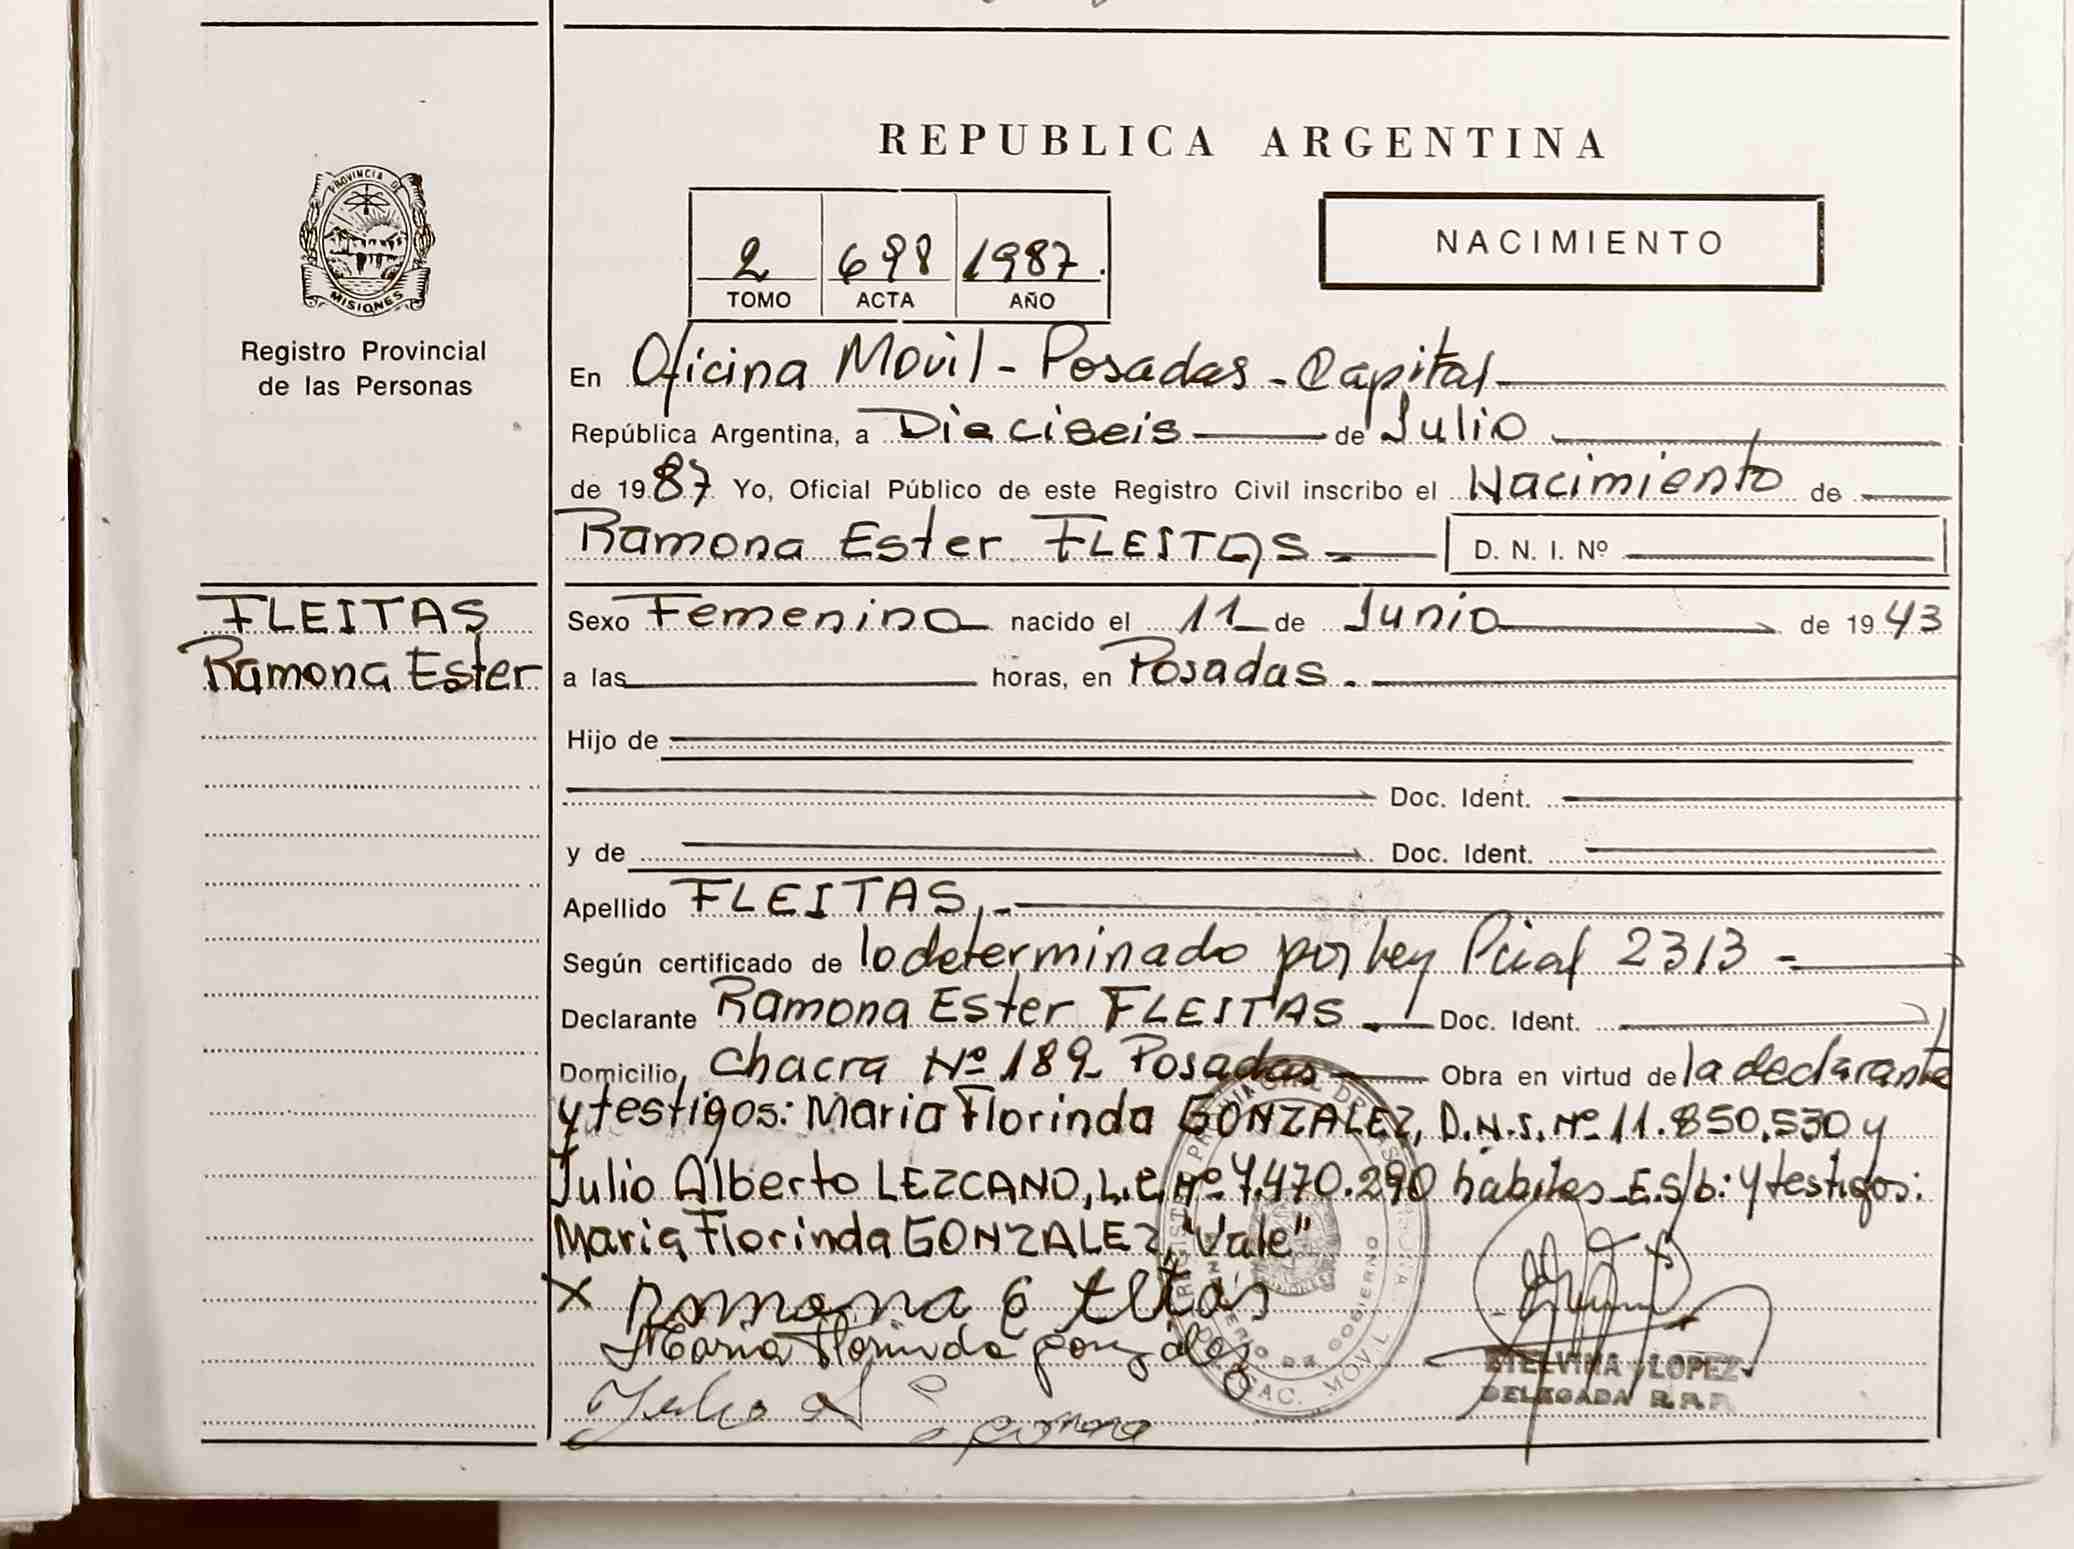 REPUBLICA ARGENTINA
PROVINCIA DE
MISIONES
Registro Provincial
de las Personas
2 698 1987.
TOMO ACTA AÑO
NACIMIENTO
En Oficina Movil - Posadas - Capital
República Argentina, a Dieciseis de Julio
de 1987 Yo, Oficial Público de este Registro Civil inscribo el Nacimiento de
Ramona Ester FLEITAS D. N. I. Nº
FLEITAS
Ramona Ester
Sexo Femenino nacido el 11 de Junio de 1943
a las horas, en Posadas.
Hijo de
Doc. Ident.
y de Doc. Ident.
Apellido FLEITAS,-
Según certificado de lo determinado por Ley Pcial 2313 -
Declarante Ramona Ester FLEITAS Doc. Ident.
Domicilio, chacra Nº 189 Posadas Obra en virtud de la declarante
y testigos: Maria Florinda GONZALEZ, D.N.I. Nº 11.850.530 y
Julio Alberto LEZCANO, L.E. Nº 7.470.290 habiles E.s/b: y testigos:
Maria Florinda GONZALEZ, "Vale"
x Ramona E
Maria Florinda gonzález
Julio A
ETELVINA LOPEZ
DELEGADA R.P.P.